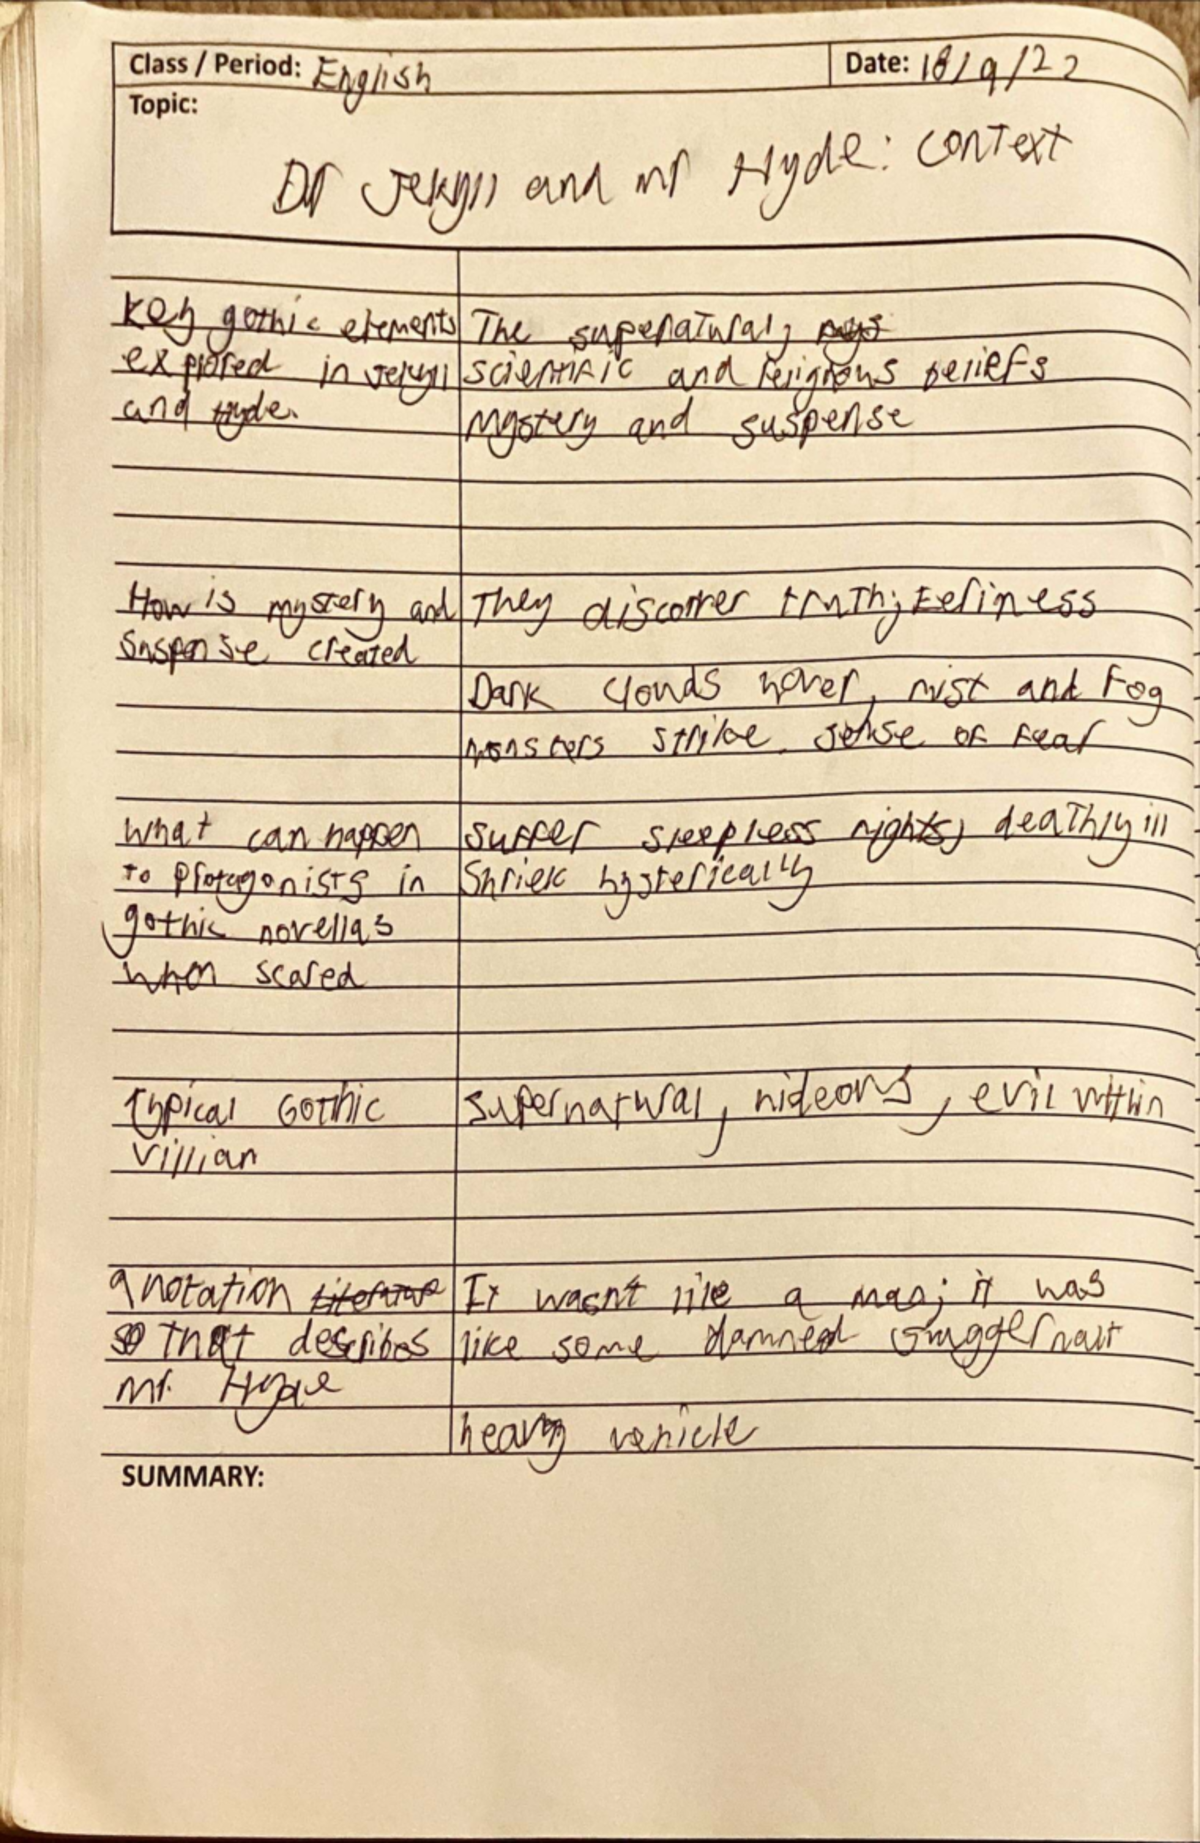 Class / Period: English
Date: 18/9/22
Topic:
Dr Jekyll and mr Hyde: context
Key gothic elements
explored in Jekyll
and Hyde.
The supenatural,
scientific and religious beliefs
Mystery and suspense
How is mystery and
suspense created
They discover truth; Eeriness
Dark clouds hover, mist and Fog
monsters strike. sense of Fear
what can happen
to protagonists in
gothic novellas
when scared
Suffer sleepless nights, deathly ill
Shriek hysterically
typical Gothic
villian
supernatural, hideous, evil within
qnotation
so that describes
mr. Hyde
It wasn't like a man; it was
like some damned Juggernaut
heavy vehicle
SUMMARY: